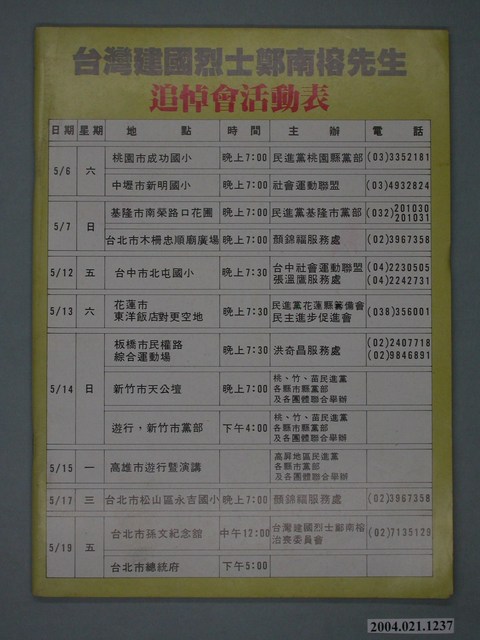 台灣建國烈士鄭南榕先生
追悼會活動表
日期 星期 地點 時間 主辦 電話
5/6 六 桃園市成功國小 晚上7:00 民進黨桃園縣黨部 (03)3352181
中壢市新明國小 晚上7:00 社會運動聯盟 (03)4932824
5/7 日 基隆市南榮路口花圃 晚上7:00 民進黨基隆市黨部 (032)201030
201031
台北市木柵忠順廟廣場 晚上7:00 顏錦福服務處 (02)3967358
5/12 五 台中市北屯國小 晚上7:30 台中社會運動聯盟 (04)2230505
張溫鷹服務處 (04)2242731
5/13 六 花蓮市
東洋飯店對更空地 晚上7:30 民進黨花蓮縣籌備會
民主進步促進會 (038)356001
5/14 日 板橋市民權路
綜合運動場 晚上7:30 洪奇昌服務處 (02)2407718
(02)9846891
新竹市天公壇 晚上7:00 桃、竹、苗民進黨
各縣市縣黨部
及各團體聯合舉辦
遊行，新竹市黨部 下午4:00 桃、竹、苗民進黨
各縣市縣黨部
及各團體聯合舉辦
5/15 一 高雄市遊行暨演講 高屏地區民進黨
各縣市黨部
及各團體聯合舉辦
5/17 三 台北市松山區永吉國小 晚上7:00 顏錦福服務處 (02)3967358
5/19 五 台北市孫文紀念館 中午12:00 台灣建國烈士鄭南榕
治喪委員會 (02)7135129
台北市總統府 下午5:00
2004.021.1237